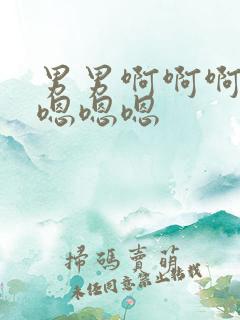 男男啊啊啊
嗯嗯嗯
掃碼賣萌
未經同意禁止轉載